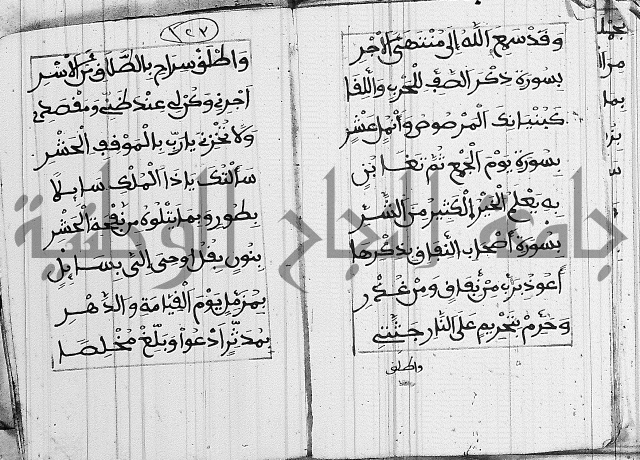 وقد سمع الله إلى منتهى الأجر
بسورة ذكر الصف للحرب واللقا
كبنيانك المرصوص وأنمل عشر
بسورة يوم الجمع ثم تغابن
به يعلم الخير الكثير من الشر
بسورة أصحاب النفاق بذكرها
أعوذ برب من نفاق ومن غدر
وحرم بتحريم على النار جثتي
واطلق
واطلق سراح بالطلاق من الأسر
أجرني وكن لي عند ظني ومقصدي
ولا تخزني يارب بالموقف الحشر
سألتك ياذا الملك سايلا
بطور وبما يتلوه من نفحة الحشر
بنون بقل اوحي التي بسايل
بمزمل يوم القيامة والدهر
بمدثر أدعوا وبلغ مخلصا
جامعة النجاح الوطنية